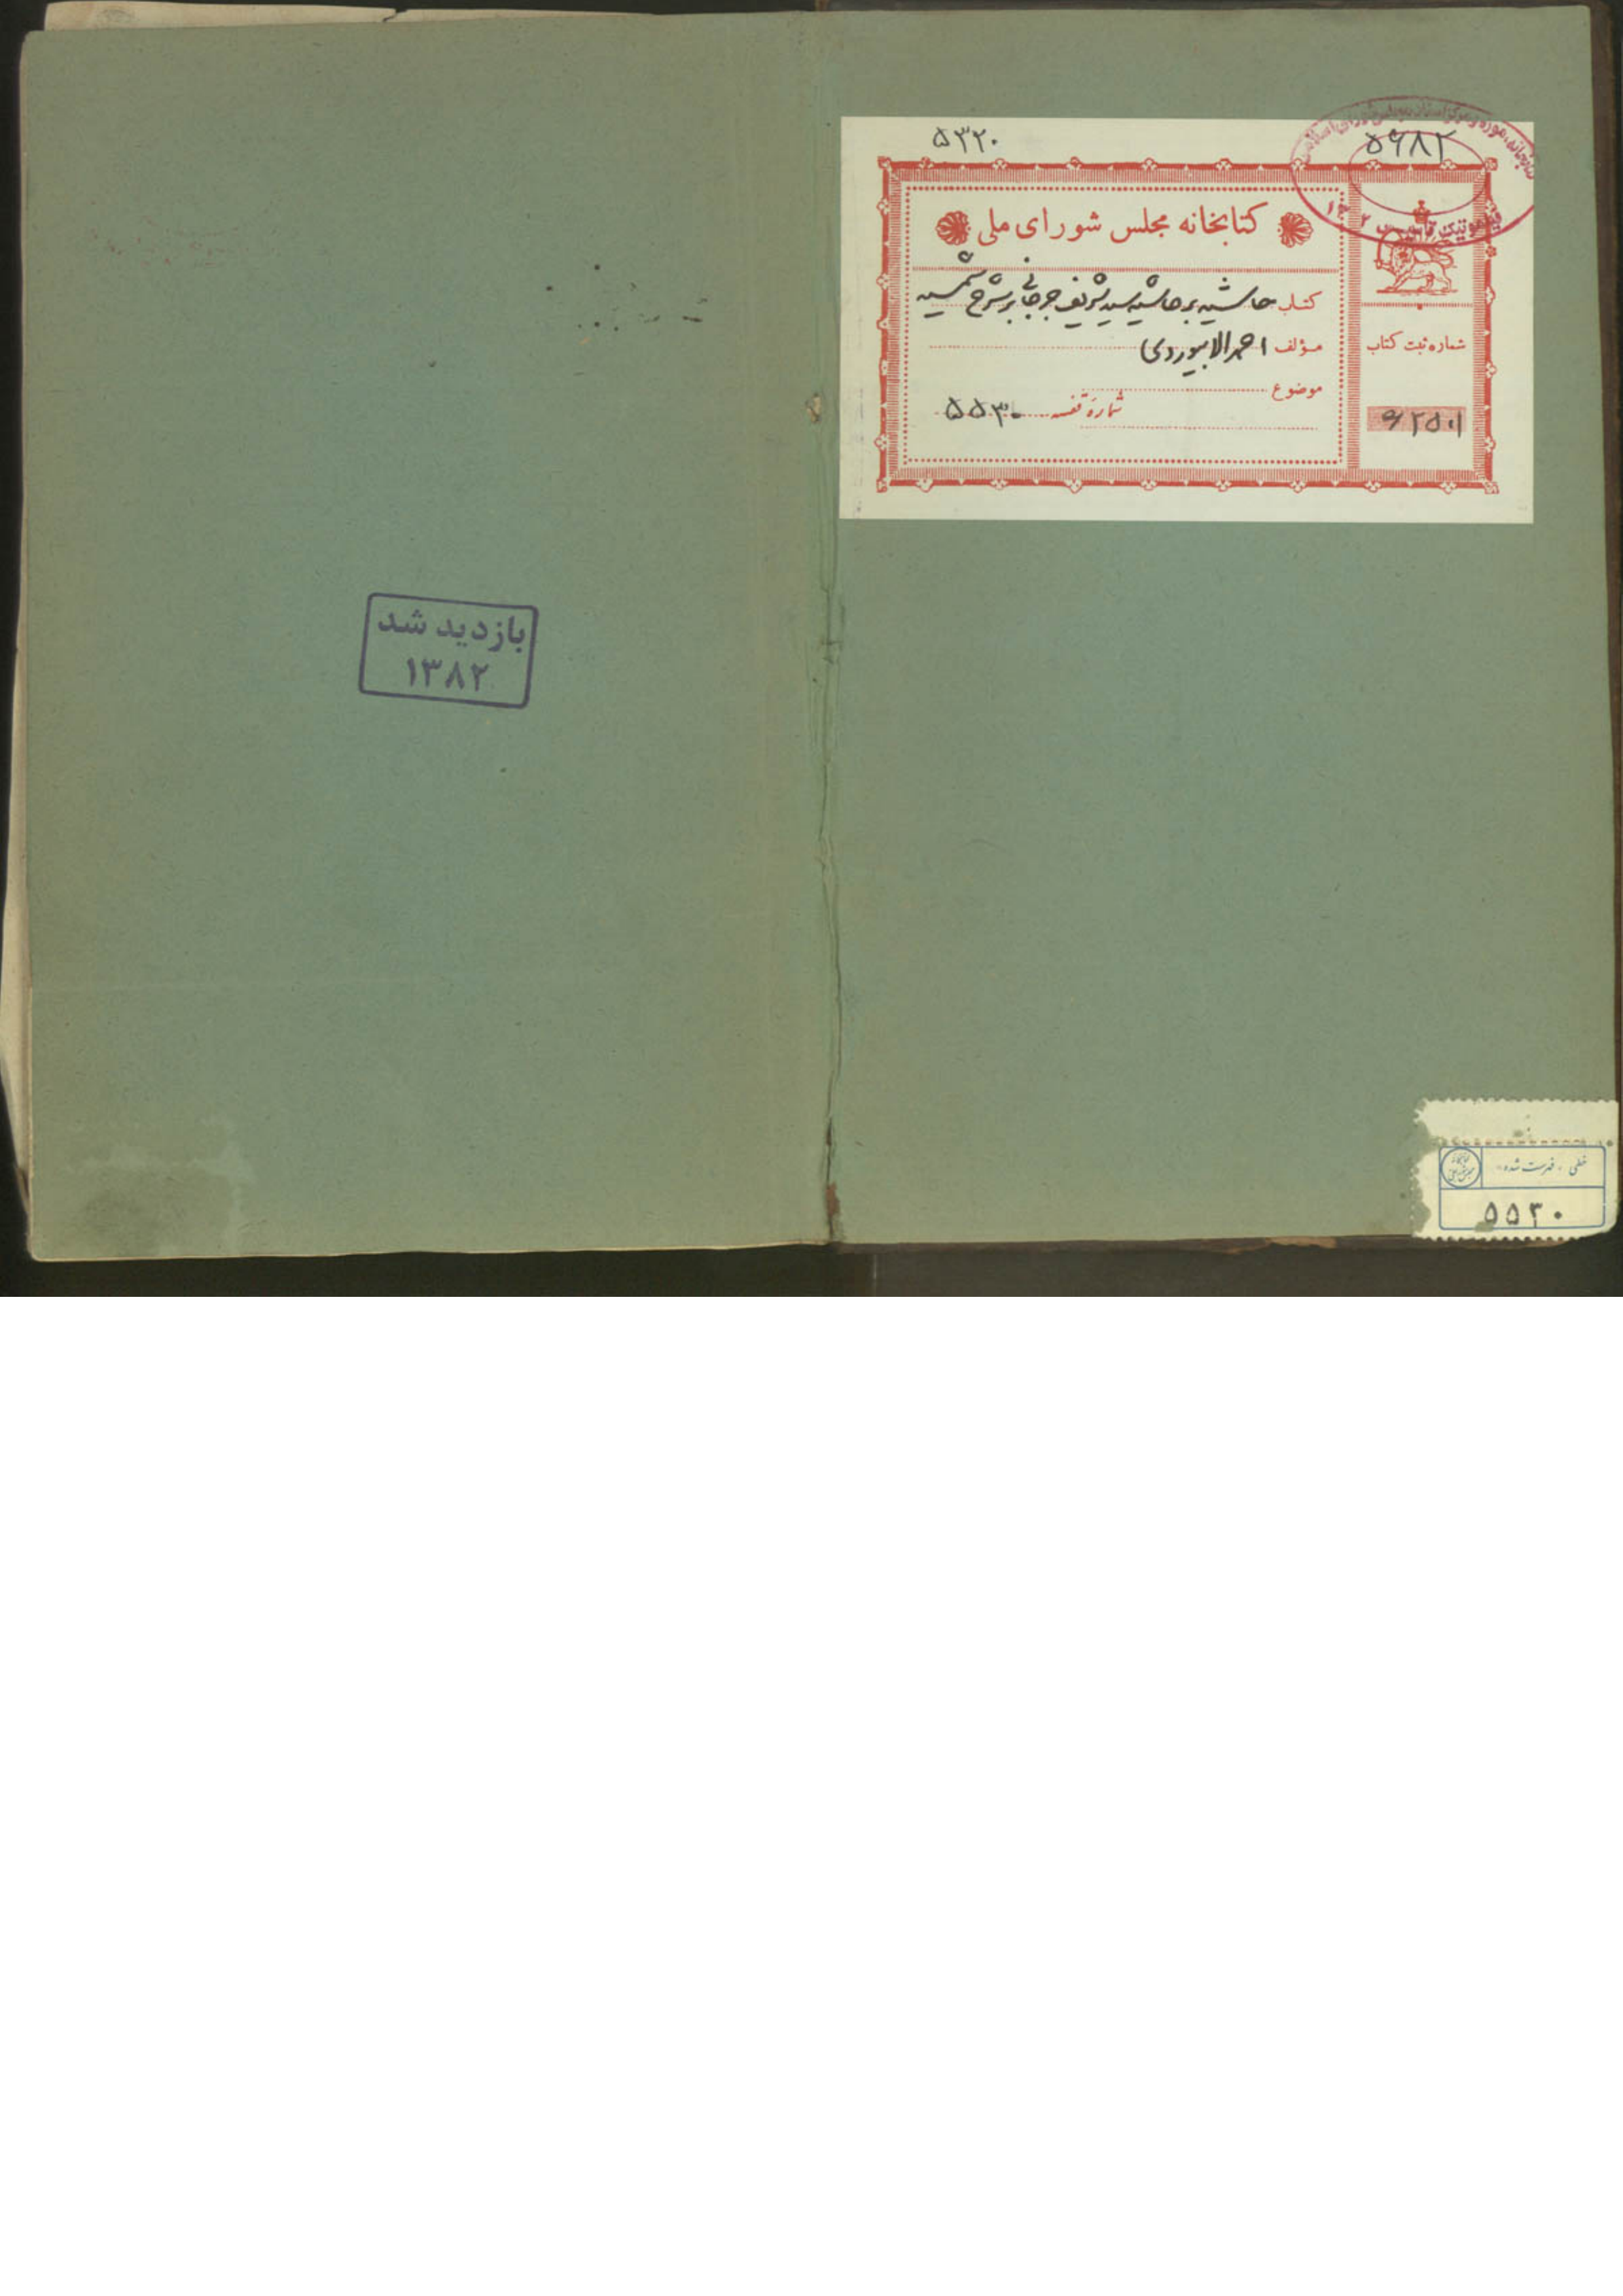 ۵۳۲۰
۵۹۸۲
کتابخانه مجلس شورای ملی
کتاب حاشیه بر حاشیه سید شریف جرجانی بر شرح شمسیه
مؤلف احمد الابیوردی
موضوع
شماره قفسه ۵۵۳۰
شماره ثبت کتاب
۶۲۵۰۱
بازدید شد
۱۳۸۲
خطی ـ فهرست شده
۵۵۳۰